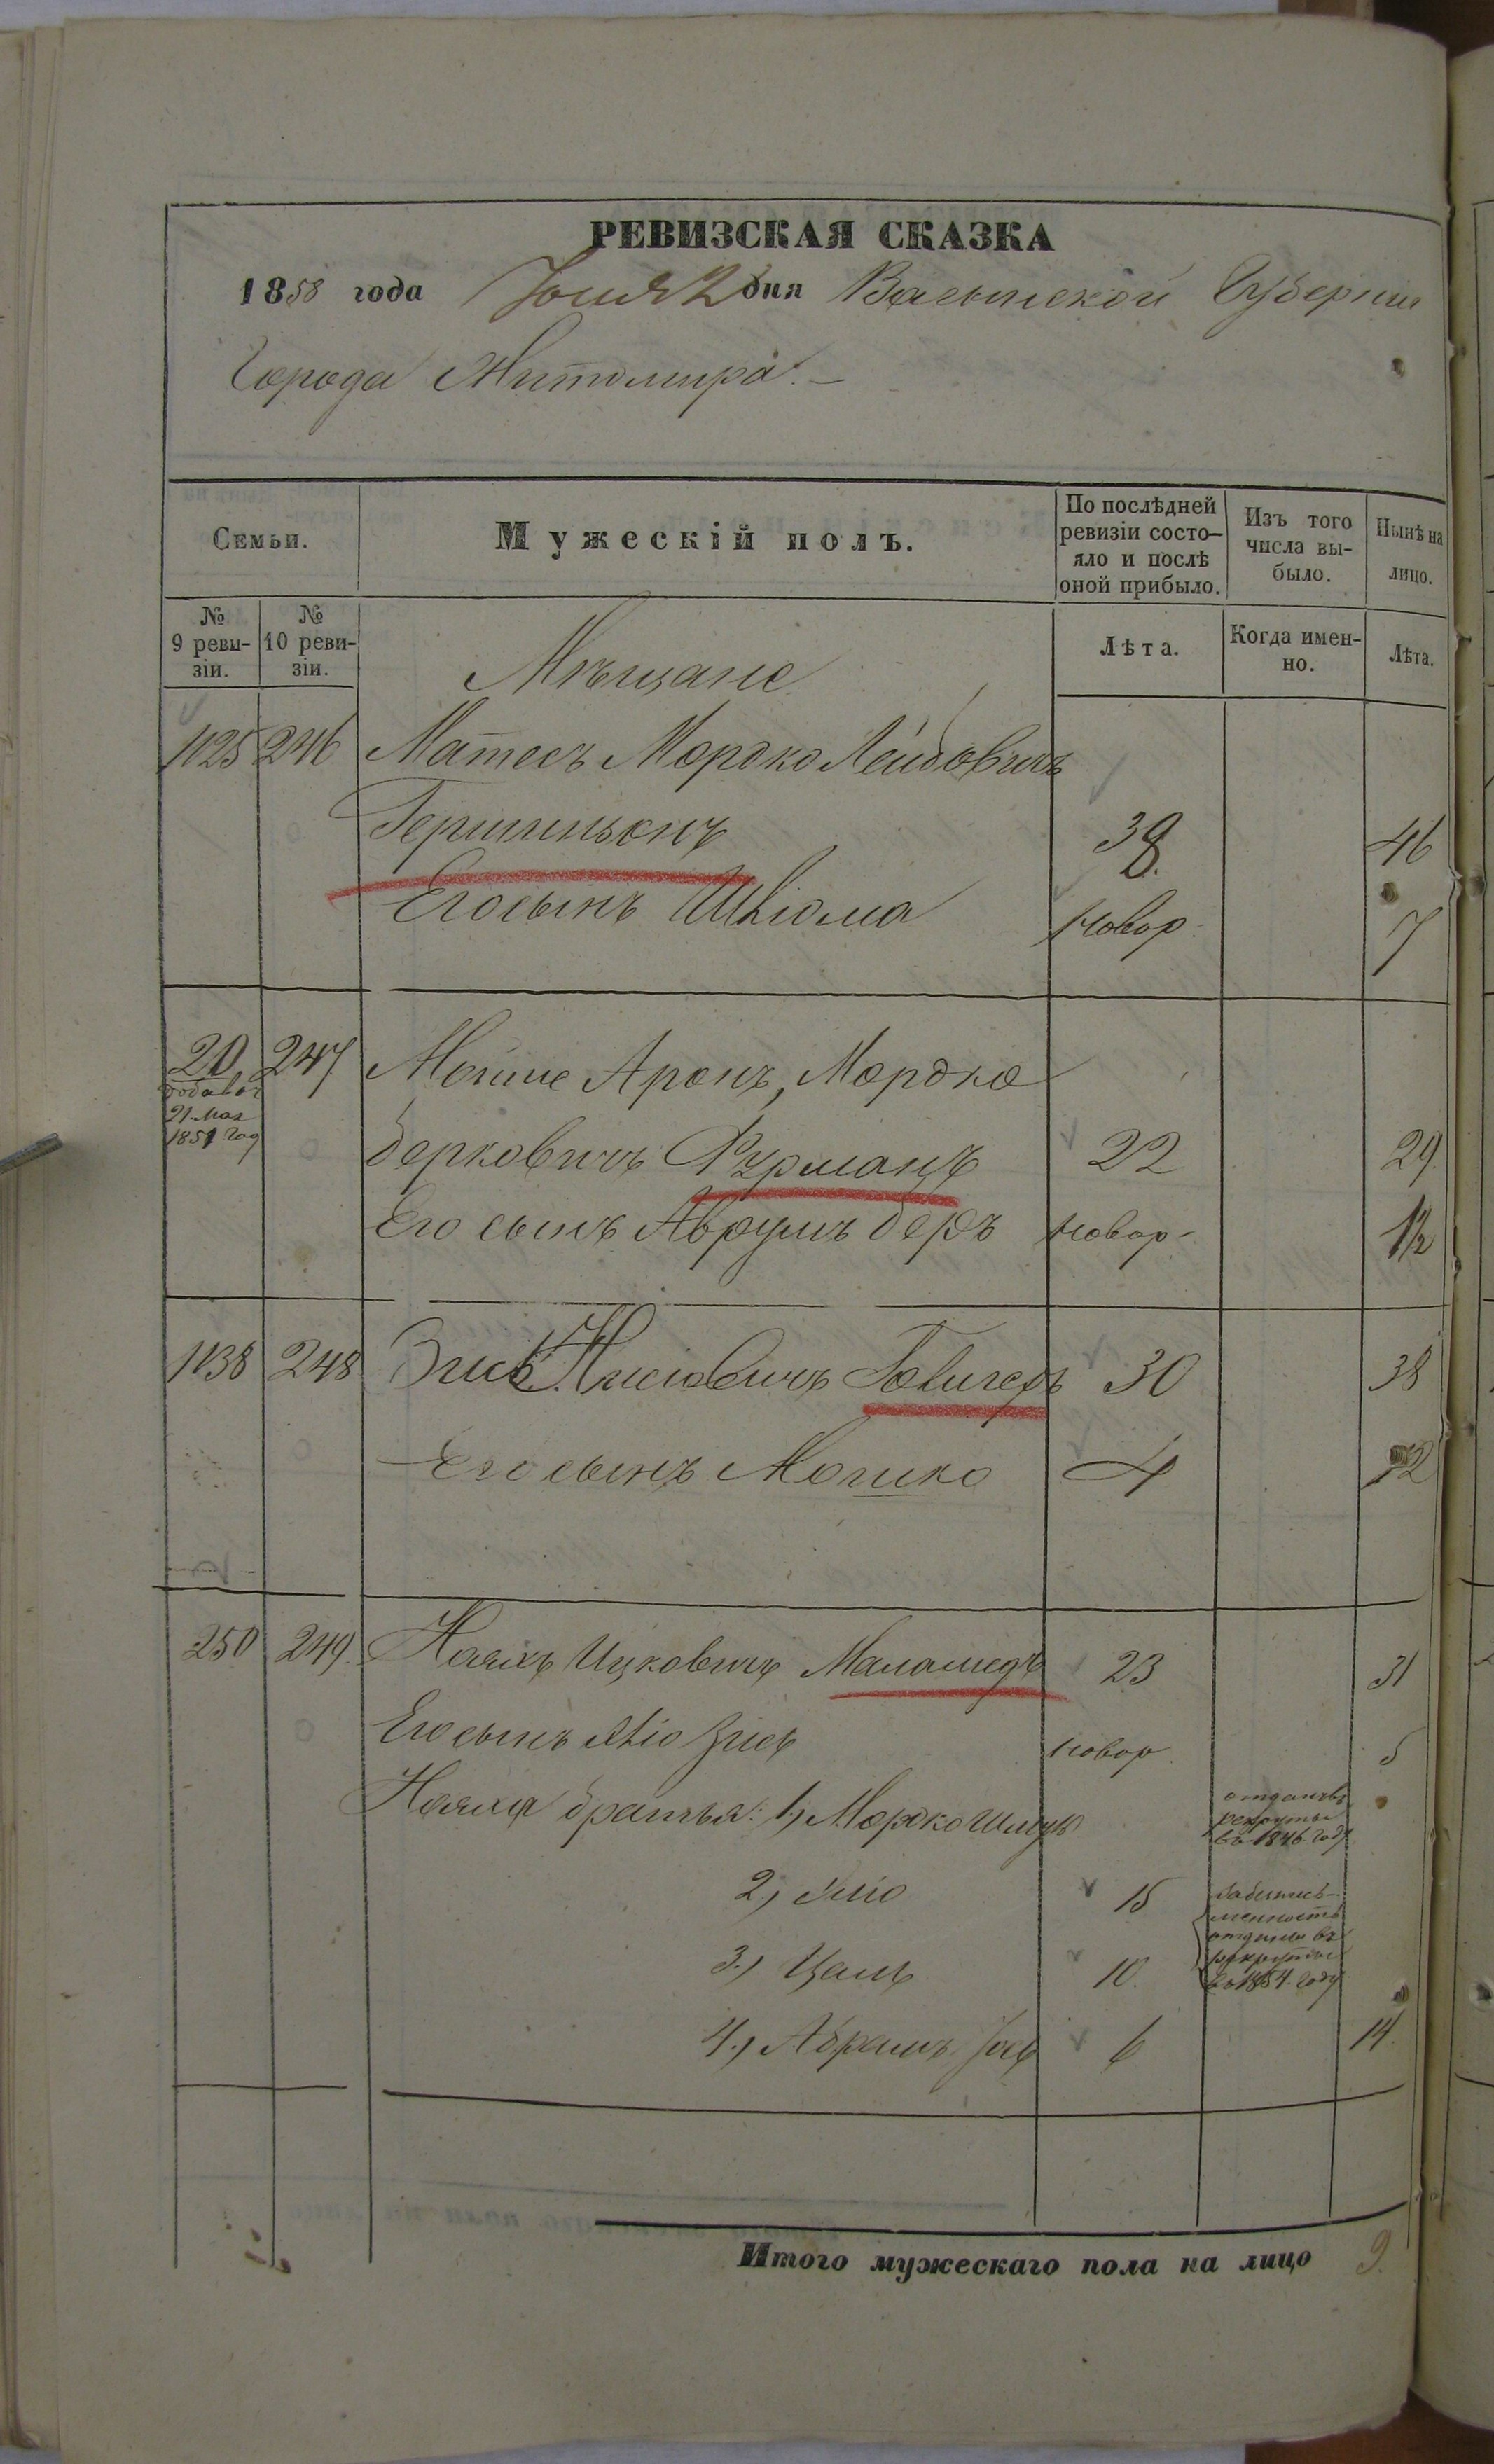 РЕВИЗСКАЯ СКАЗКА
1858 года Іюня 2 дня Волынской Губерніи
Города Житомира. –
Семьи.
Мужескій полъ.
По послѣдней ревизіи состо-
яло и послѣ
оной прибыло.
Изъ того
числа вы-
было.
Нынѣ на
лицо.
№
9 реви-
зіи.
№
10 реви-
зіи.
Лѣта.
Когда имен-
но.
Лѣта.
Мѣщане
1125 246 Матесъ Мордко Лейбовичъ
Гершиньонъ 38. 46
Его сынъ Шліома Новор. 7
20 247 Мойше Аронъ, Мордко
добавоч
21 Мая
1851 год
Берковичъ Фурманъ 22 29
Его сынъ Аврумъ Беръ Новор- 1½
1138 248 Зись Нисіовичъ 30 38
Его сынъ Мошко 4 12
250 249 Ицковичъ Маламедъ 23 31
Его сынъ Зись Новор. 5
братья: 1, Мордко
отданъ въ
рекруты
въ 1846 году
2, 15
отданы въ
рекруты
въ 1854 году
3., 10.
4., Абрамъ 6 14.
Итого мужескаго пола на лицо 9.